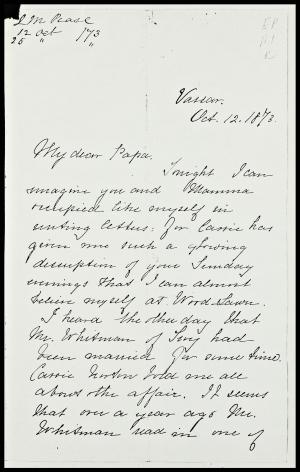 L M Pease
12 Oct 1873
25 " "
Vassar.
Oct. 12. 1873.
My dear Papa.
Tonight I can
imagine you and Mamma
occupied like myself in
writing letters; for Carrie has
given me such a glowing
description of your Sunday
evenings that I can almost
believe myself at Word Lawn.
I heard the other day that
Mr. Whitman of Troy had
been married for some time.
Carrie Norton told me all
about the affair. It seems
that over a year ago Mr.
Whitman read in one of